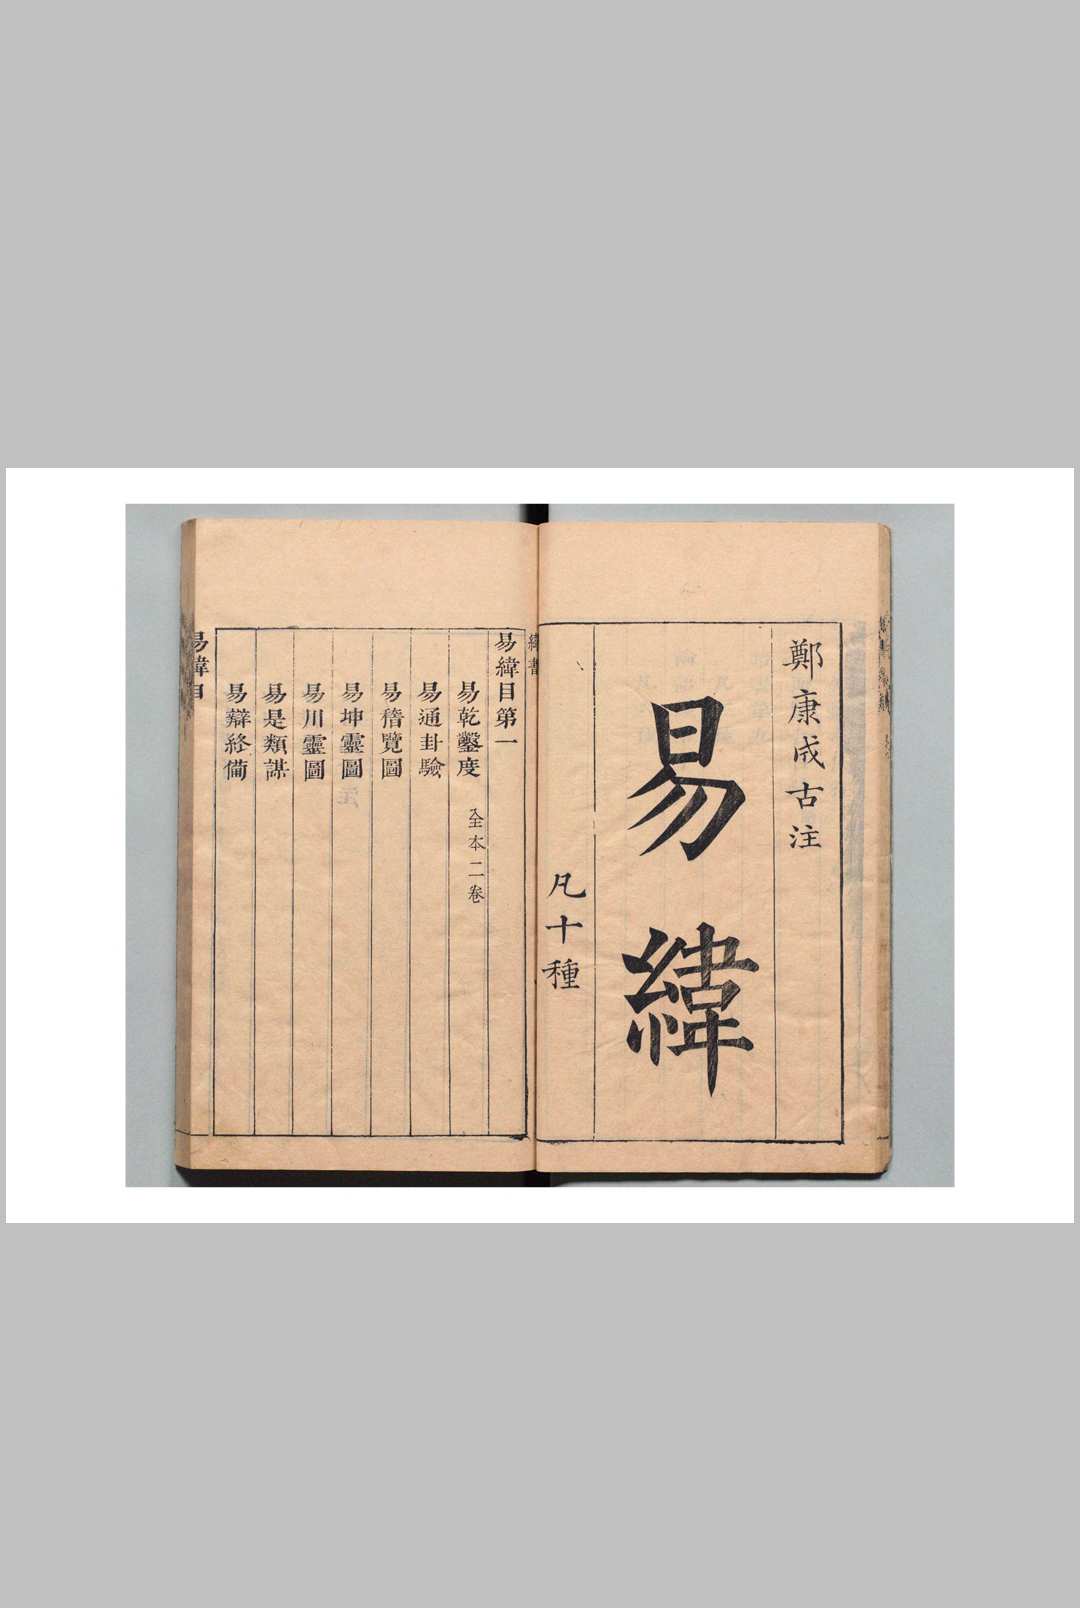 鄭康成古注
易緯
凡十種
緯書
易緯目第一
易乾鑿度 全本二卷
易通卦驗
易稽覽圖
易坤靈圖
易川靈圖
易是類謀
易辯終備
易緯目